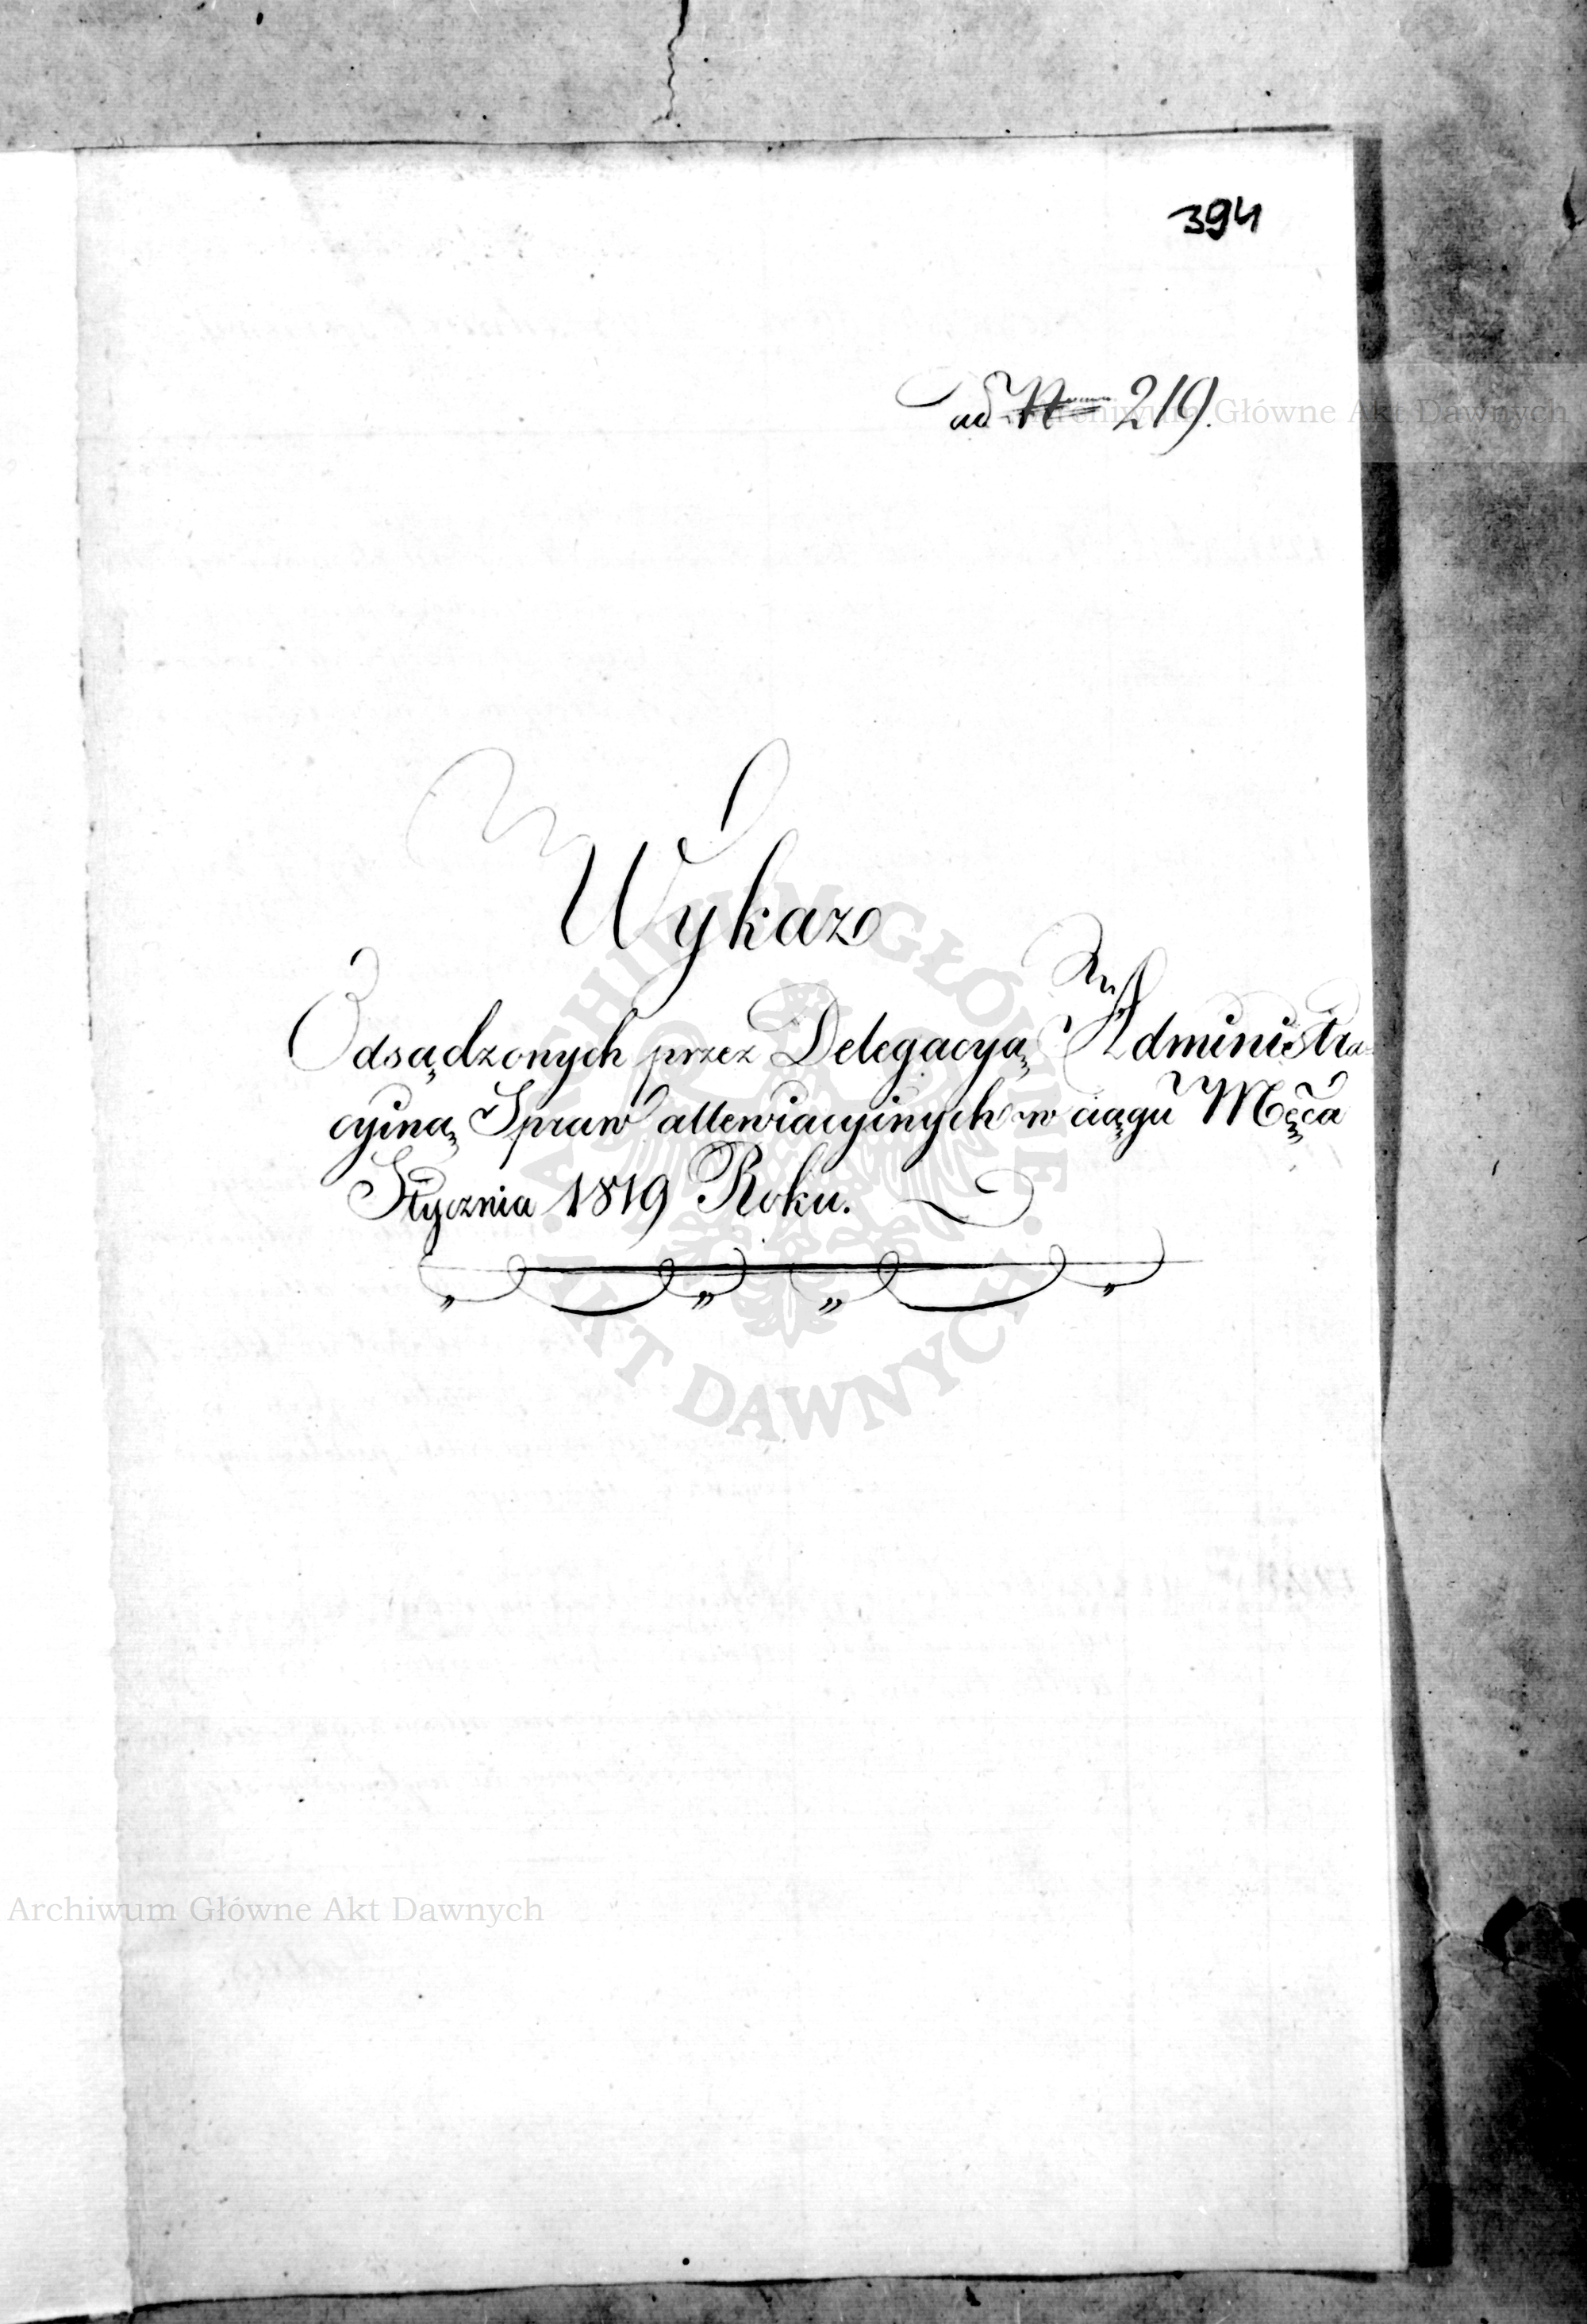 394
ad Nrum 219.
Wykaz
Odsądzonych przez Delegacyą Administra-
cyiną Spraw allewiacyinych w ciągu Mca
Stycznia 1819 Roku.
Archiwum Główne Akt Dawnych
ARCHIWUM GŁÓWNE AKT DAWNYCH
Archiwum Główne Akt Dawnych